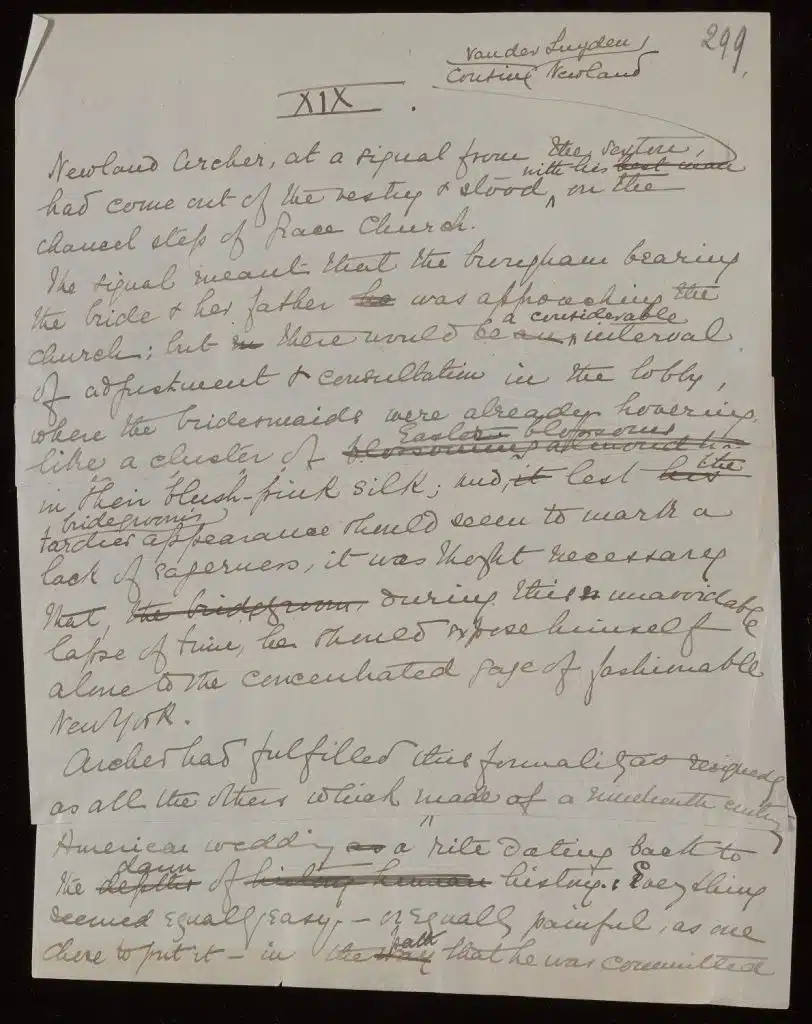 299.
van der Luyden
Cousins Newland
XIX.
Newland Archer, at a signal from the sexton,
with his best man
had come out of the vestry & stood on the
chancel step of Grace Church.
The signal meant that the brougham bearing
the bride & her father he was approaching the
a considerable
church; but in there would be an interval
of adjustment & consultation in the lobby,
where the bridesmaids were already hovering
Easter blossoms
like a cluster of blossoming almond
the
in their blush-pink silk; and, it lest his
bridegroom's
tardier appearance should seem to mark a
lack of eagerness, it was thought necessary
that, the bridegroom, during this unavoidable
lapse of time, he should expose himself
alone to the concentrated gaze of fashionable
New York.
Archer had fulfilled this formality as resignedly
as all the others which made of a nineteenth century
American wedding as a rite dating back to
dawn
the depths of history human history. Everything
seemed equally easy – or equally painful, as one
path
chose to put it – in the way that he was committed